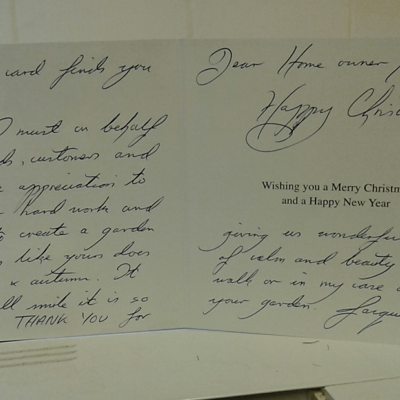 card finds you
I must on behalf
customers and
appreciation to
hard work and
to create a garden
like yours does
& autumn. It
smile it is so
THANK YOU for
Dear Home owner
Happy Chris
Wishing you a Merry Christm
and a Happy New Year
giving us wonderful
of calm and beauty
walk or in my care
your garden. Jacqu